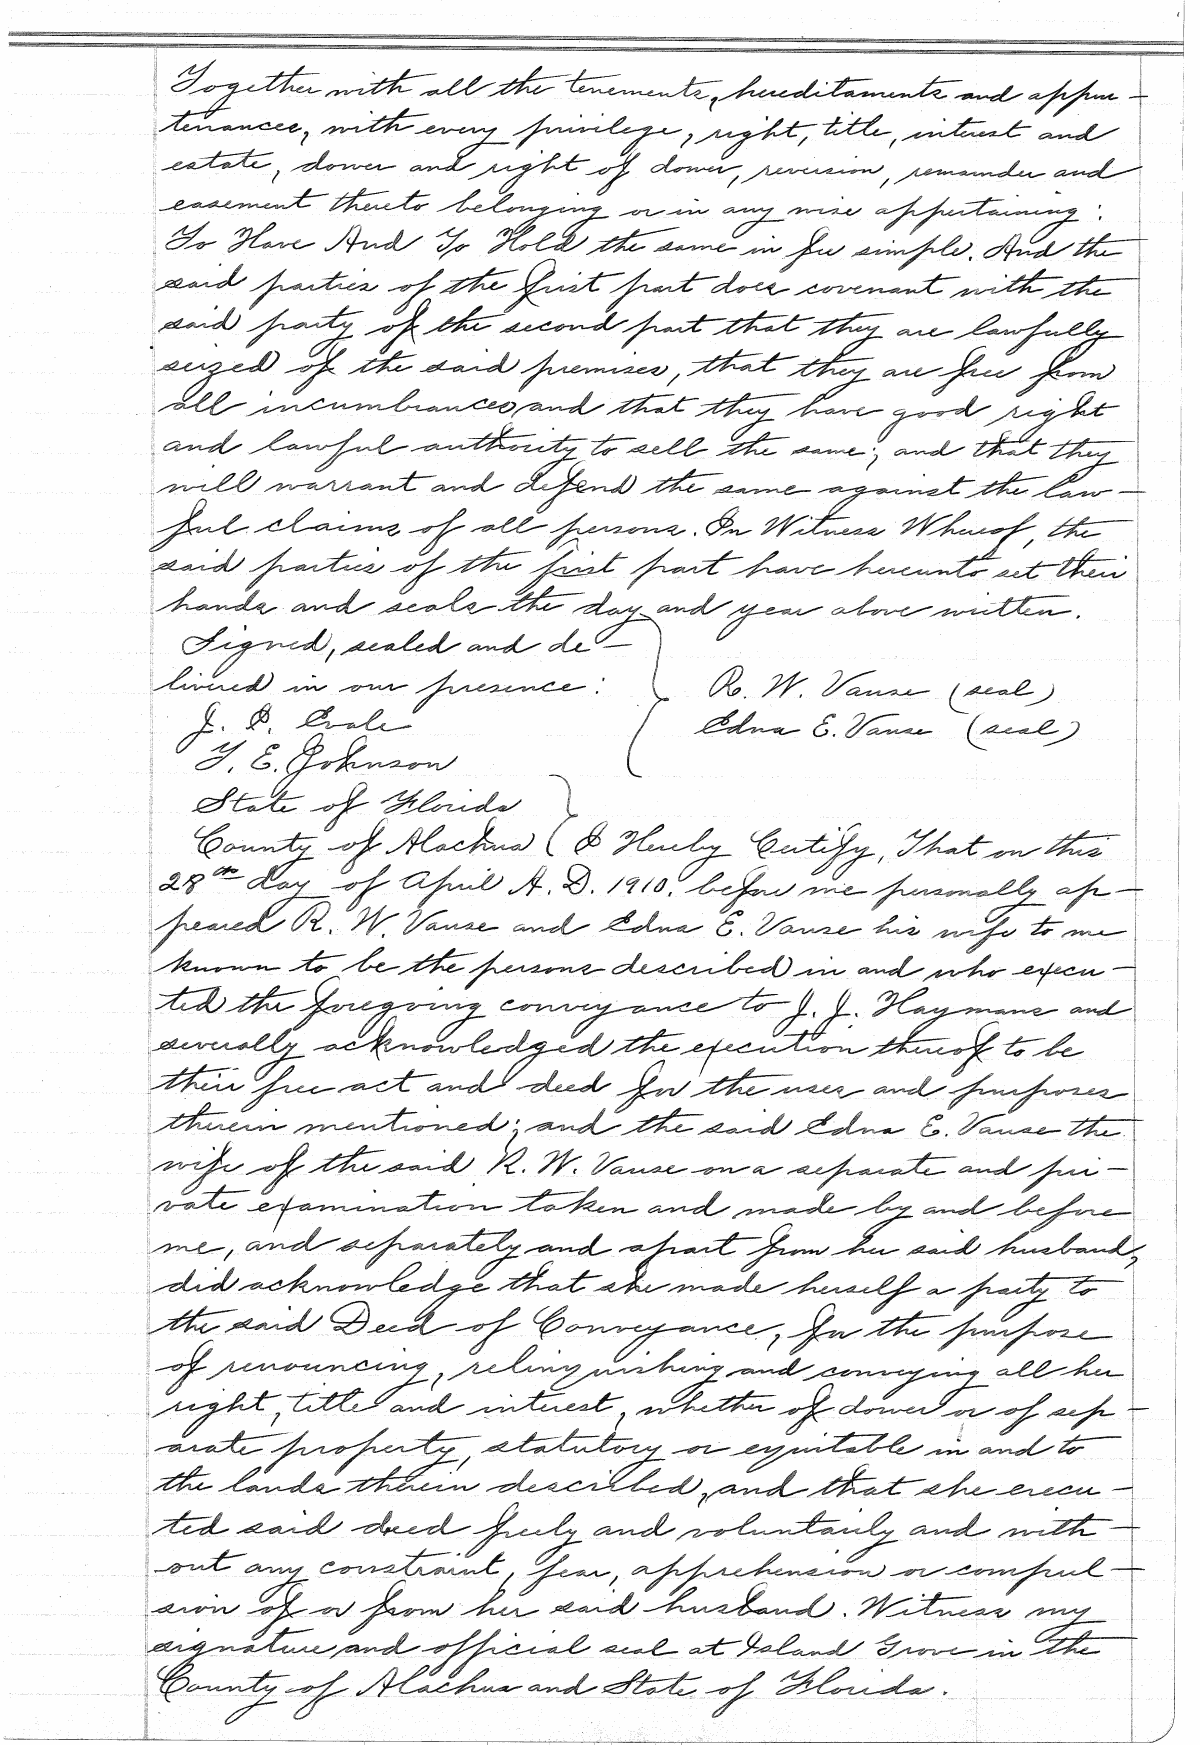 Together with all the tenements, hereditaments and appur-
tenances, with every privilege, right, title, interest and
estate, dower and right of dower, reversion, remainder and
easement thereto belonging or in any wise appertaining:
To Have And To Hold the same in fee simple. And the
said parties of the first part does covenant with the
said party of the second part that they are lawfully
seized of the said premises, that they are free from
all incumbrances, and that they have good right
and lawful authority to sell the same; and that they
will warrant and defend the same against the law-
ful claims of all persons. In Witness Whereof, the
said parties of the first part have hereunto set their
hands and seals the day and year above written.
Signed, sealed and de-
livered in our presence:
R. W. Vause (seal)
J. P.
Edna E. Vause (seal)
T. E. Johnson
State of Florida
County of Alachua I Hereby Certify, That on this
28th day of April A. D. 1910. before me personally ap-
peared R. W. Vause and Edna E. Vause his wife to me
known to be the persons described in and who execu-
ted the foregoing conveyance to J. J. Haymans and
severally acknowledged the execution thereof to be
their free act and deed for the uses and purposes
therein mentioned; and the said Edna E. Vause the
wife of the said R. W. Vause on a separate and pri-
vate examination taken and made by and before
me, and separately and apart from her said husband,
did acknowledge that she made herself a party to
the said Deed of Conveyance, for the purpose
of renouncing, relinquishing and conveying all her
right, title and interest, whether of dower or of sep-
arate property, statutory or equitable in and to
the lands therein described, and that she execu-
ted said deed freely and voluntarily and with-
out any constraint, fear, apprehension or compul-
sion of or from her said husband. Witness my
signature and official seal at Island Grove in the
County of Alachua and State of Florida.